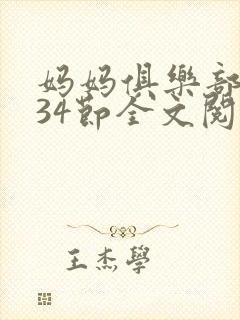 妈妈俱樂部
34節全文閱
王杰學